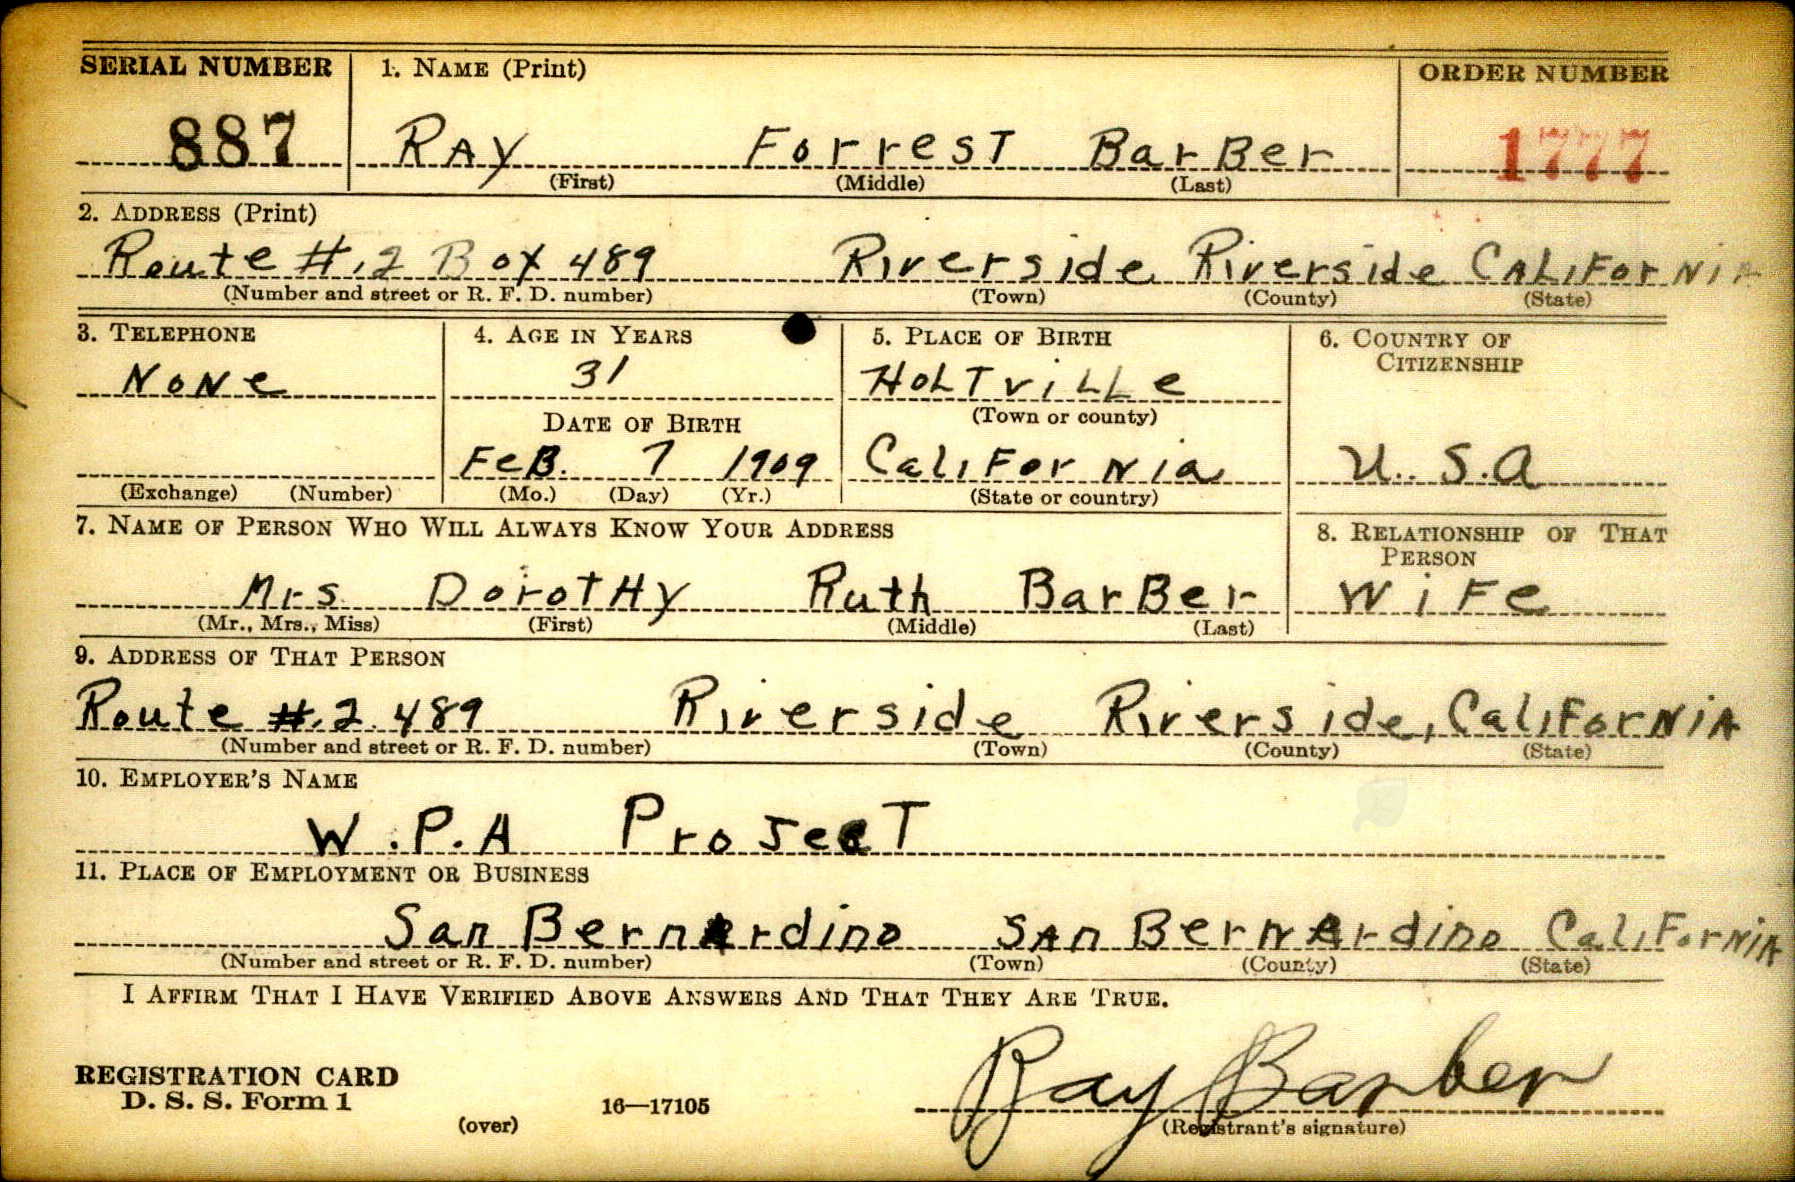 SERIAL NUMBER 1. NAME (Print) ORDER NUMBER
887 RAY Forrest Barber 1777
(First) (Middle) (Last)
2. ADDRESS (Print)
Route #.2 Box 489 Riverside Riverside California
(Number and street or R. F. D. number) (Town) (County) (State)
3. TELEPHONE 4. AGE IN YEARS 5. PLACE OF BIRTH 6. COUNTRY OF CITIZENSHIP
None 31 Holtville
DATE OF BIRTH (Town or county)
Feb. 7 1909 California U.S.A
(Exchange) (Number) (Mo.) (Day) (Yr.) (State or country)
7. NAME OF PERSON WHO WILL ALWAYS KNOW YOUR ADDRESS 8. RELATIONSHIP OF THAT PERSON
Mrs Dorothy Ruth Barber Wife
(Mr., Mrs., Miss) (First) (Middle) (Last)
9. ADDRESS OF THAT PERSON
Route #.2. 489 Riverside Riverside, California
(Number and street or R. F. D. number) (Town) (County) (State)
10. EMPLOYER'S NAME
W.P.A Project
11. PLACE OF EMPLOYMENT OR BUSINESS
San Bernardino San Bernardino California
(Number and street or R. F. D. number) (Town) (County) (State)
I AFFIRM THAT I HAVE VERIFIED ABOVE ANSWERS AND THAT THEY ARE TRUE.
REGISTRATION CARD Ray Barber
D. S. S. Form 1 16—17105
(over) (Registrant's signature)